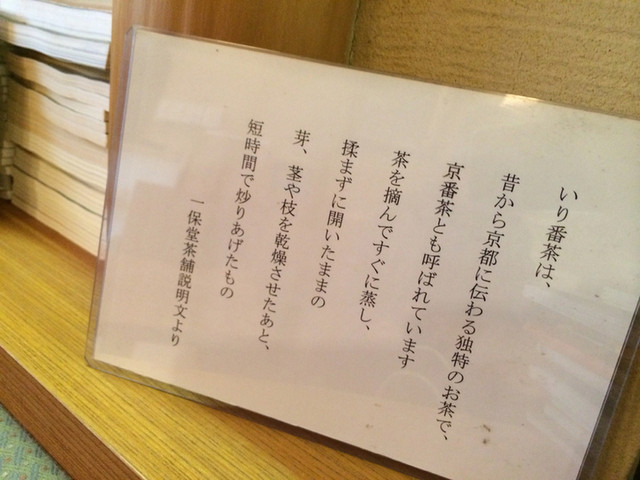 いり番茶は、
昔から京都に伝わる独特のお茶で、
京番茶とも呼ばれています
茶を摘んですぐに蒸し、
揉まずに開いたままの
芽、茎や枝を乾燥させたあと、
短時間で炒りあげたもの
一保堂茶舗説明文より